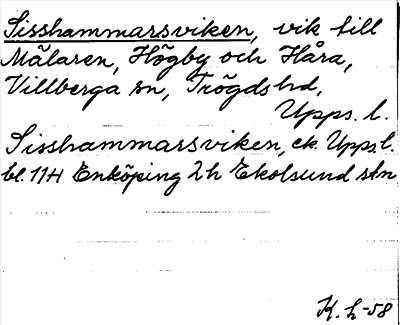 Sisshammarsviken, vik till
Mälaren, Högby och Håra,
Villberga sn, Trögds hd,
Upps. l.
Sisshammarsviken, ek. Upps. l.
bl. 114 Enköping 2 h Ekolsund stn
K. h -58